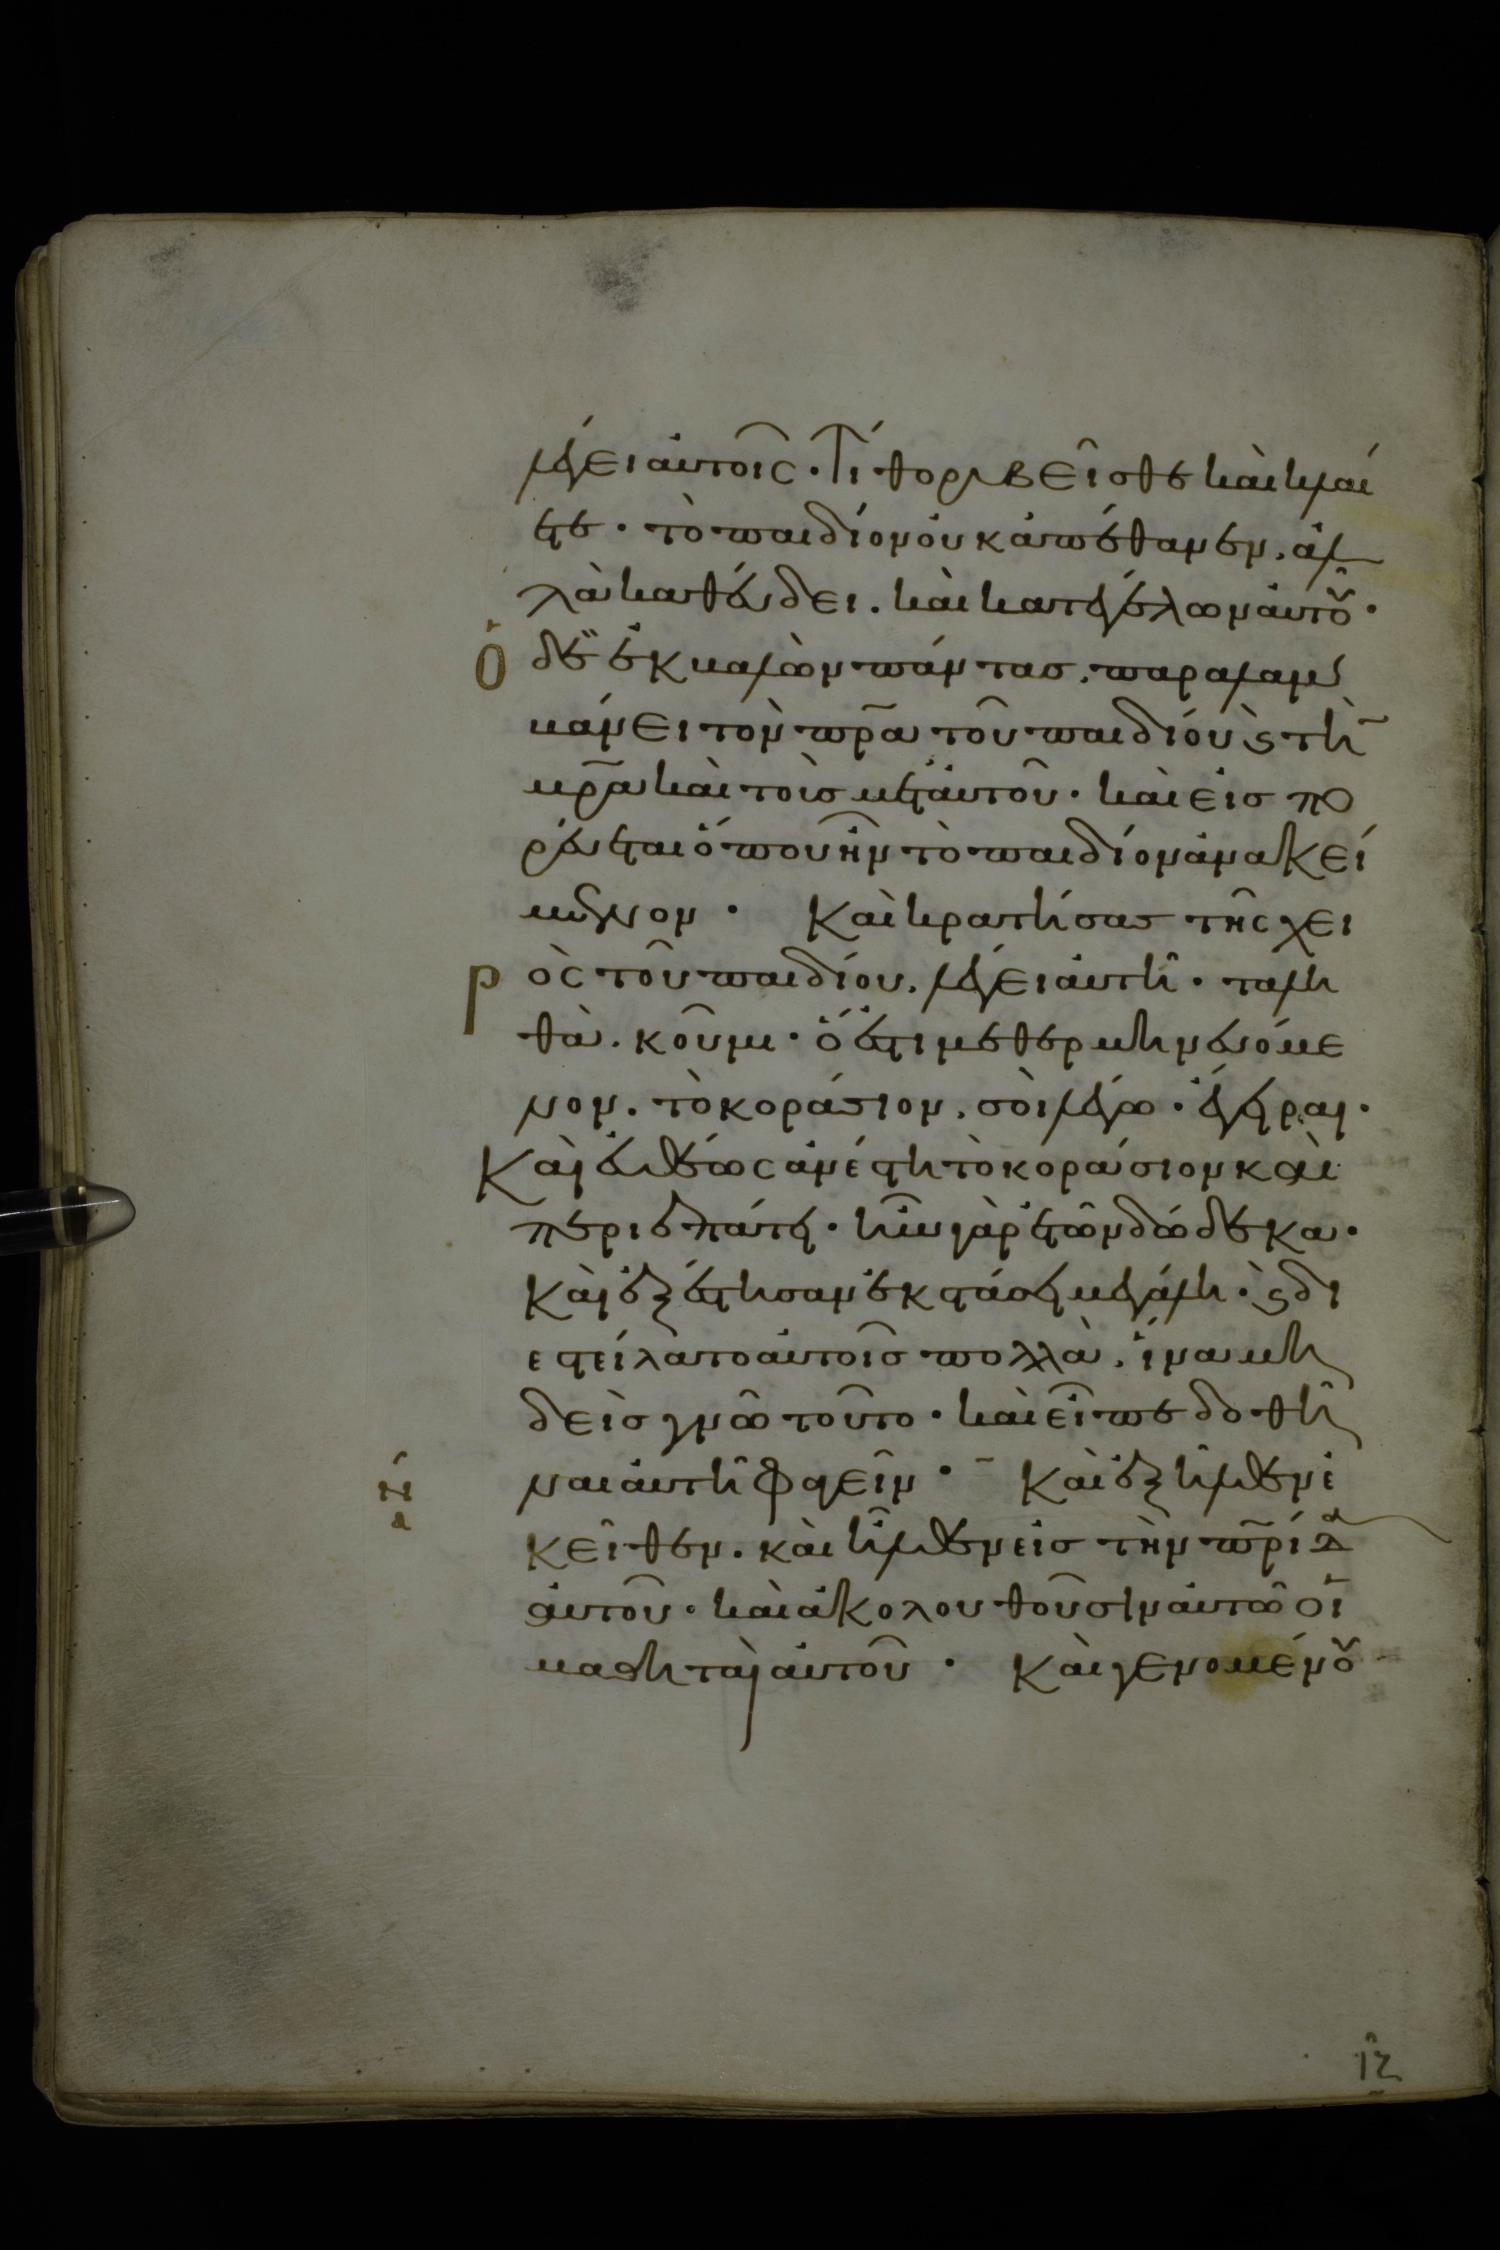 λέγει αὐτοῖς· Τί θορυβεῖσθε καὶ κλαί
ετε· τὸ παιδίον οὐκ ἀπέθανεν, ἀλ
λὰ καθεύδει. καὶ κατεγέλων αὐτοῦ·
ὁ δὲ ἐκβαλὼν πάντας, παραλαμ
βάνει τὸν πρ̅α τοῦ παιδίου ϗ τὴν
μρ̅α καὶ τοὺς μετ' αὐτοῦ· καὶ εἰσπο
ρεύεται ὅπου ἦν τὸ παιδίον ἀνακεί
μενον· Καὶ κρατήσας τῆς χει
ρὸς τοῦ παιδίου, λέγει αὐτῆ· ταλι
θὰ. κοῦμι· ὅ ἐστι μεθερμηνευόμε
νον. τὸ κοράσιον, σοὶ λέγω· ἔγειραι·
Καὶ εὐθέως ἀνέστη τὸ κοράσιον καὶ
περιεπάτει· ἦν γὰρ ἐτῶν δώδεκα·
Καὶ ἐξέστησαν ἐκστάσει μεγάλη· ϗ δι
εστείλατο αὐτοῖς πολλὰ, ἵνα μη
δεὶς γνῶ τοῦτο· καὶ εἶπε δοθῆ
ναι αὐτῆ φαγεῖν· Καὶ ἐξῆλθεν ἐ
κεῖθεν. καὶ ἦλθεν εἰς τὴν πρ̅ίδα
αὐτοῦ· καὶ ἀκολουθοῦσιν αὐτῶ οἱ
μαθηταὶ αὐτοῦ· Καὶ γενομένου